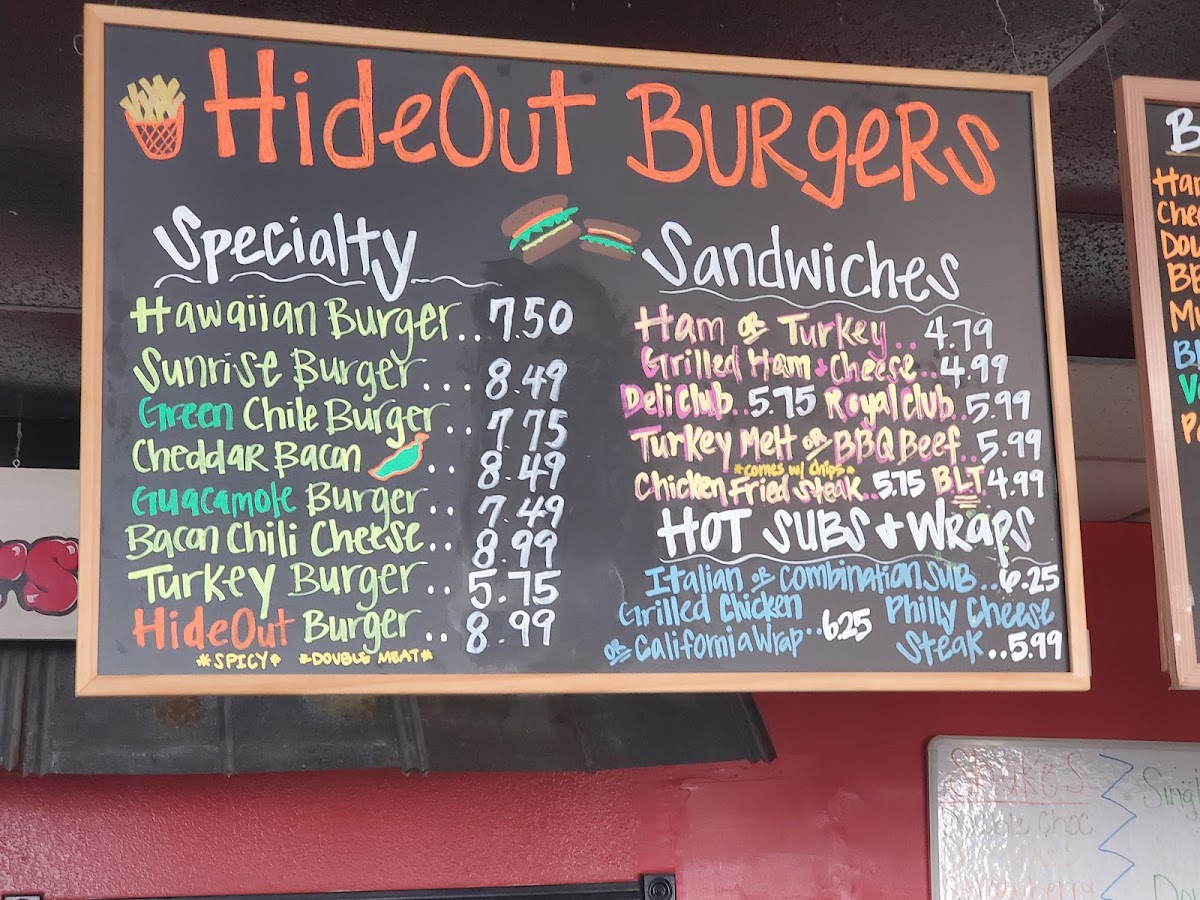 HideOut Burgers
Specialty
Hawaiian Burger.. 7.50
Sunrise Burger... 8.49
Green Chile Burger.. 7.75
Cheddar Bacon .. 8.49
Guacamole Burger.. 7.49
Bacon Chili Cheese.. 8.99
Turkey Burger.. 5.75
HideOut Burger.. 8.99
*SPICY* *DOUBLE MEAT*
Sandwiches
Ham or Turkey.. 4.79
Grilled Ham + Cheese.. 4.99
Deli Club.. 5.75 Royal Club.. 5.99
Turkey Melt or BBQ Beef.. 5.99
*comes w/ chips*
Chicken Fried Steak.. 5.75 BLT 4.99
HOT SUBS + WRAPS
Italian or Combination Sub.. 6.25
Grilled Chicken
or California Wrap.. 6.25
Philly Cheese
Steak.. 5.99
Shakes
Choc